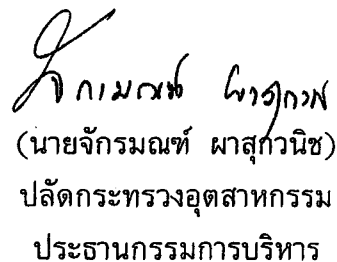 จักรมณฑ์ ผาสุกวนิช
(นายจักรมณฑ์ ผาสุกวนิช)
ปลัดกระทรวงอุตสาหกรรม
ประธานกรรมการบริหาร